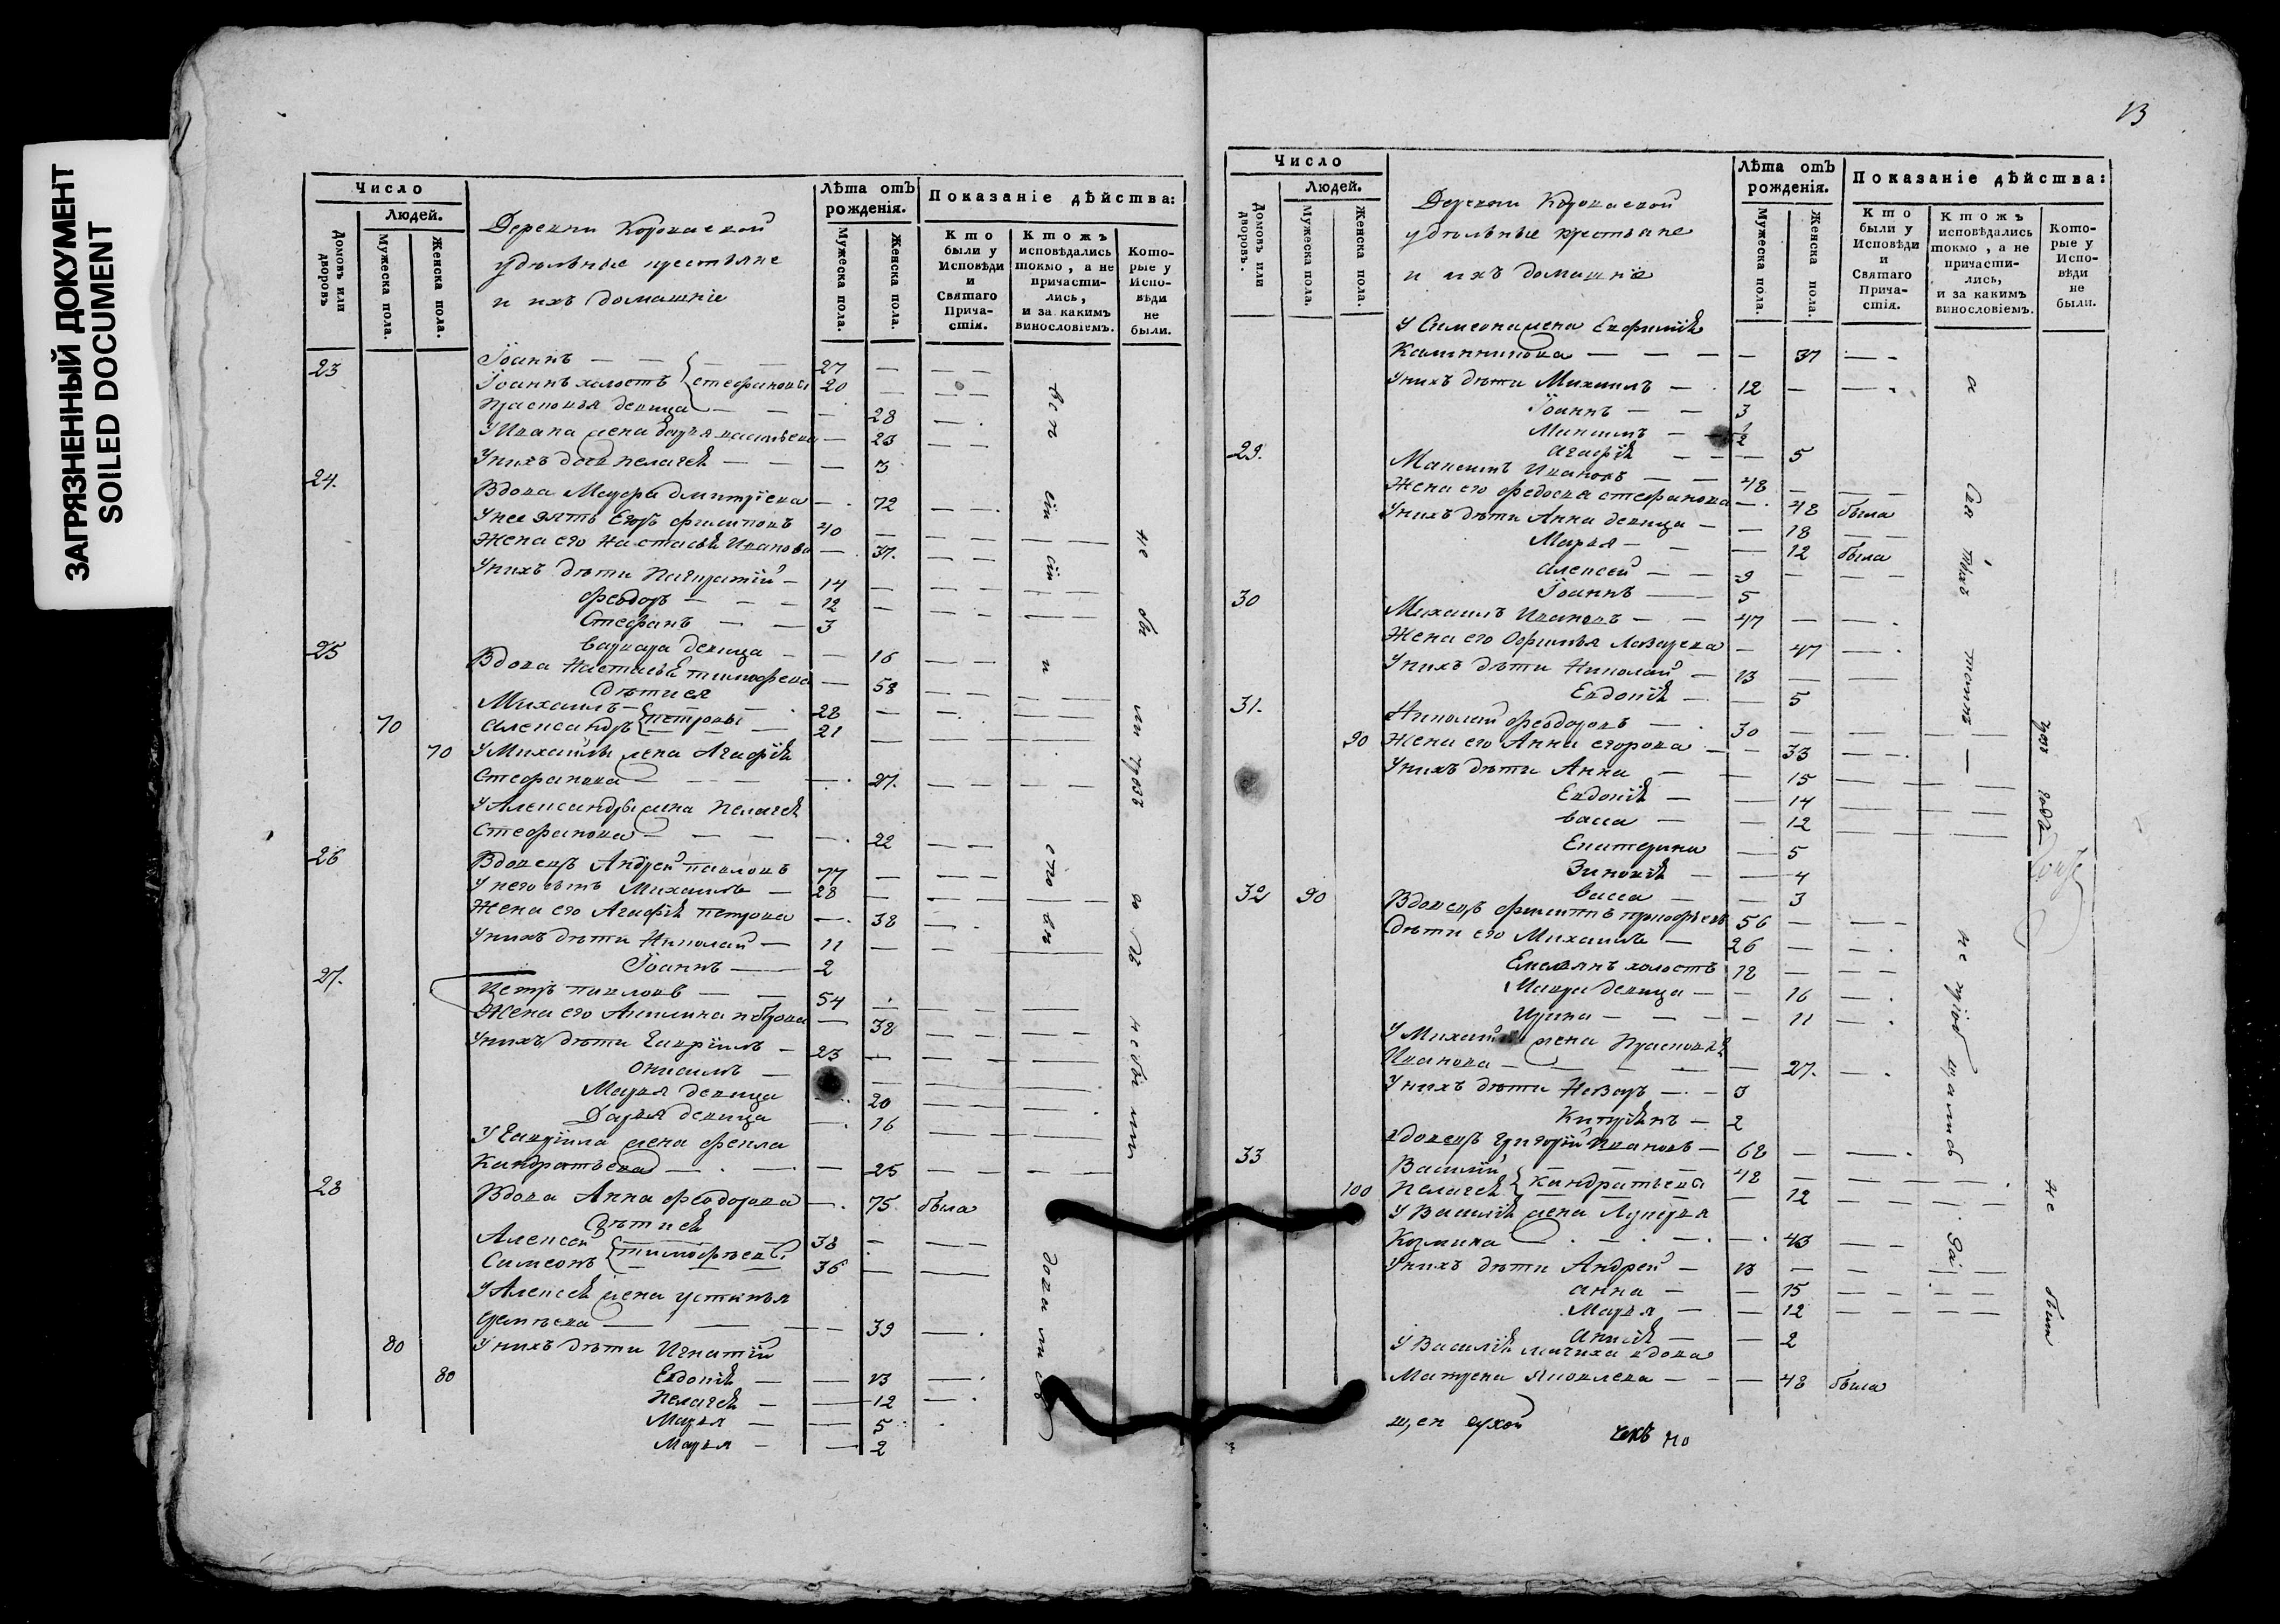 ЗАГРЯЗНЕННЫЙ ДОКУМЕНТ
SOILED DOCUMENT
Число
Людей.
Домовъ или дворовъ
Мужеска пола.
Женска пола.
Деревни
удѣльные крестьяне
и ихъ домашніе
Лѣта отъ рожденія.
Мужеска пола.
Женска пола.
Показаніе дѣйства:
Кто были у Исповѣди и Святаго Причастія.
Ктожъ исповѣдались токмо, а не причастились, и за какимъ винословіемъ.
Которые у Исповѣди не были.
23 Іоаннъ 27
Іоаннъ холостъ Стефановы 20
Прасковья девица 28
У Ивана жена Дарья Васильева 23
У нихъ дочь Пелагея 3
24. Вдова Мавра Дмитріева 72
У нее зять Егоръ Филиповъ 40
Жена его Настасья Иванова 37.
У нихъ дѣти 14
Феодоръ 12
Стефанъ 3
Варвара девица 16
25 Вдова Настасья Тимофева 58
Дѣти ея
Михаилъ 28
70 Александръ Петровы 21
70 У Михаила жена Агафія
Стефанова 27.
У Александра жена Пелагея
Стефанова 22
26 Вдовецъ Андрей Павловъ 77
У него сынъ Михаилъ 28
Жена его Агафія Петрова 38
У нихъ дѣти Николай 11
Іоаннъ 2
27. Петръ Павловъ 54
Жена его Акилина Петрова 38
У нихъ дѣти Гавріилъ 23
Онисимъ
Марья девица 20
Дарья девица 16
У Гавріила жена Фекла
Кандратьева 25
28 Вдова Анна Феодорова 75 была
Дѣти ея
Алексей 38
Симеонъ Тимофѣевы 36
У Алексея жена Устинья
39
80 У нихъ дѣти Игнатій
80 Евдокія 13
Пелагея 12
Марья 5
Марья 2
13
Число
Людей.
Домовъ или дворовъ.
Мужеска пола.
Женска пола.
Деревни
удѣльные крестьяне
и ихъ домашніе
Лѣта отъ рожденія.
Мужеска пола.
Женска пола.
Показаніе дѣйства:
Кто были у Исповѣди и Святаго Причастія.
Ктожъ исповѣдались токмо, а не причастились, и за какимъ винословіемъ.
Которые у Исповѣди не были.
У Симеона жена Евфимія
Калинникова 37
У нихъ дѣти Михаилъ 12
Іоаннъ 3
Максимъ 1/2
Агафія 5
29. Максимъ Ивановъ 48
Жена его Федосья Стефанова 48 была
У нихъ дѣти Анна девица 18
Марья 12 была
Алексей 9
Іоаннъ 5
30 Михаилъ Ивановъ 47
Жена его Офимья Лазарева 47
У нихъ дѣти Николай 13
Евдокія 5
31. Николай Феодоровъ 30
90 Жена его Анна Егорова 33
У нихъ дѣти Анна 15
Евдокія 14
Васса 12
Екатерина 5
Зиновія 4
Васса 3
32 90 Вдовецъ Филиппъ 56
Дѣти его Михаилъ 26
Емельянъ холостъ 18
Мавра девица 16
Ирина 11
У Михаила жена Прасковья
Иванова 27.
У нихъ дѣти Назаръ 3
Кипріянъ 2
33 Вдовецъ Григорій Ивановъ 68
Василій 48
100 Пелагея Кандратьевы 12
У Василія жена Лукерья
Козмина 43
У нихъ дѣти Андрей 13
Анна 15
Марья 12
Анисія 2
У Василія мачиха вдова
Матрена Яковлева 48 была